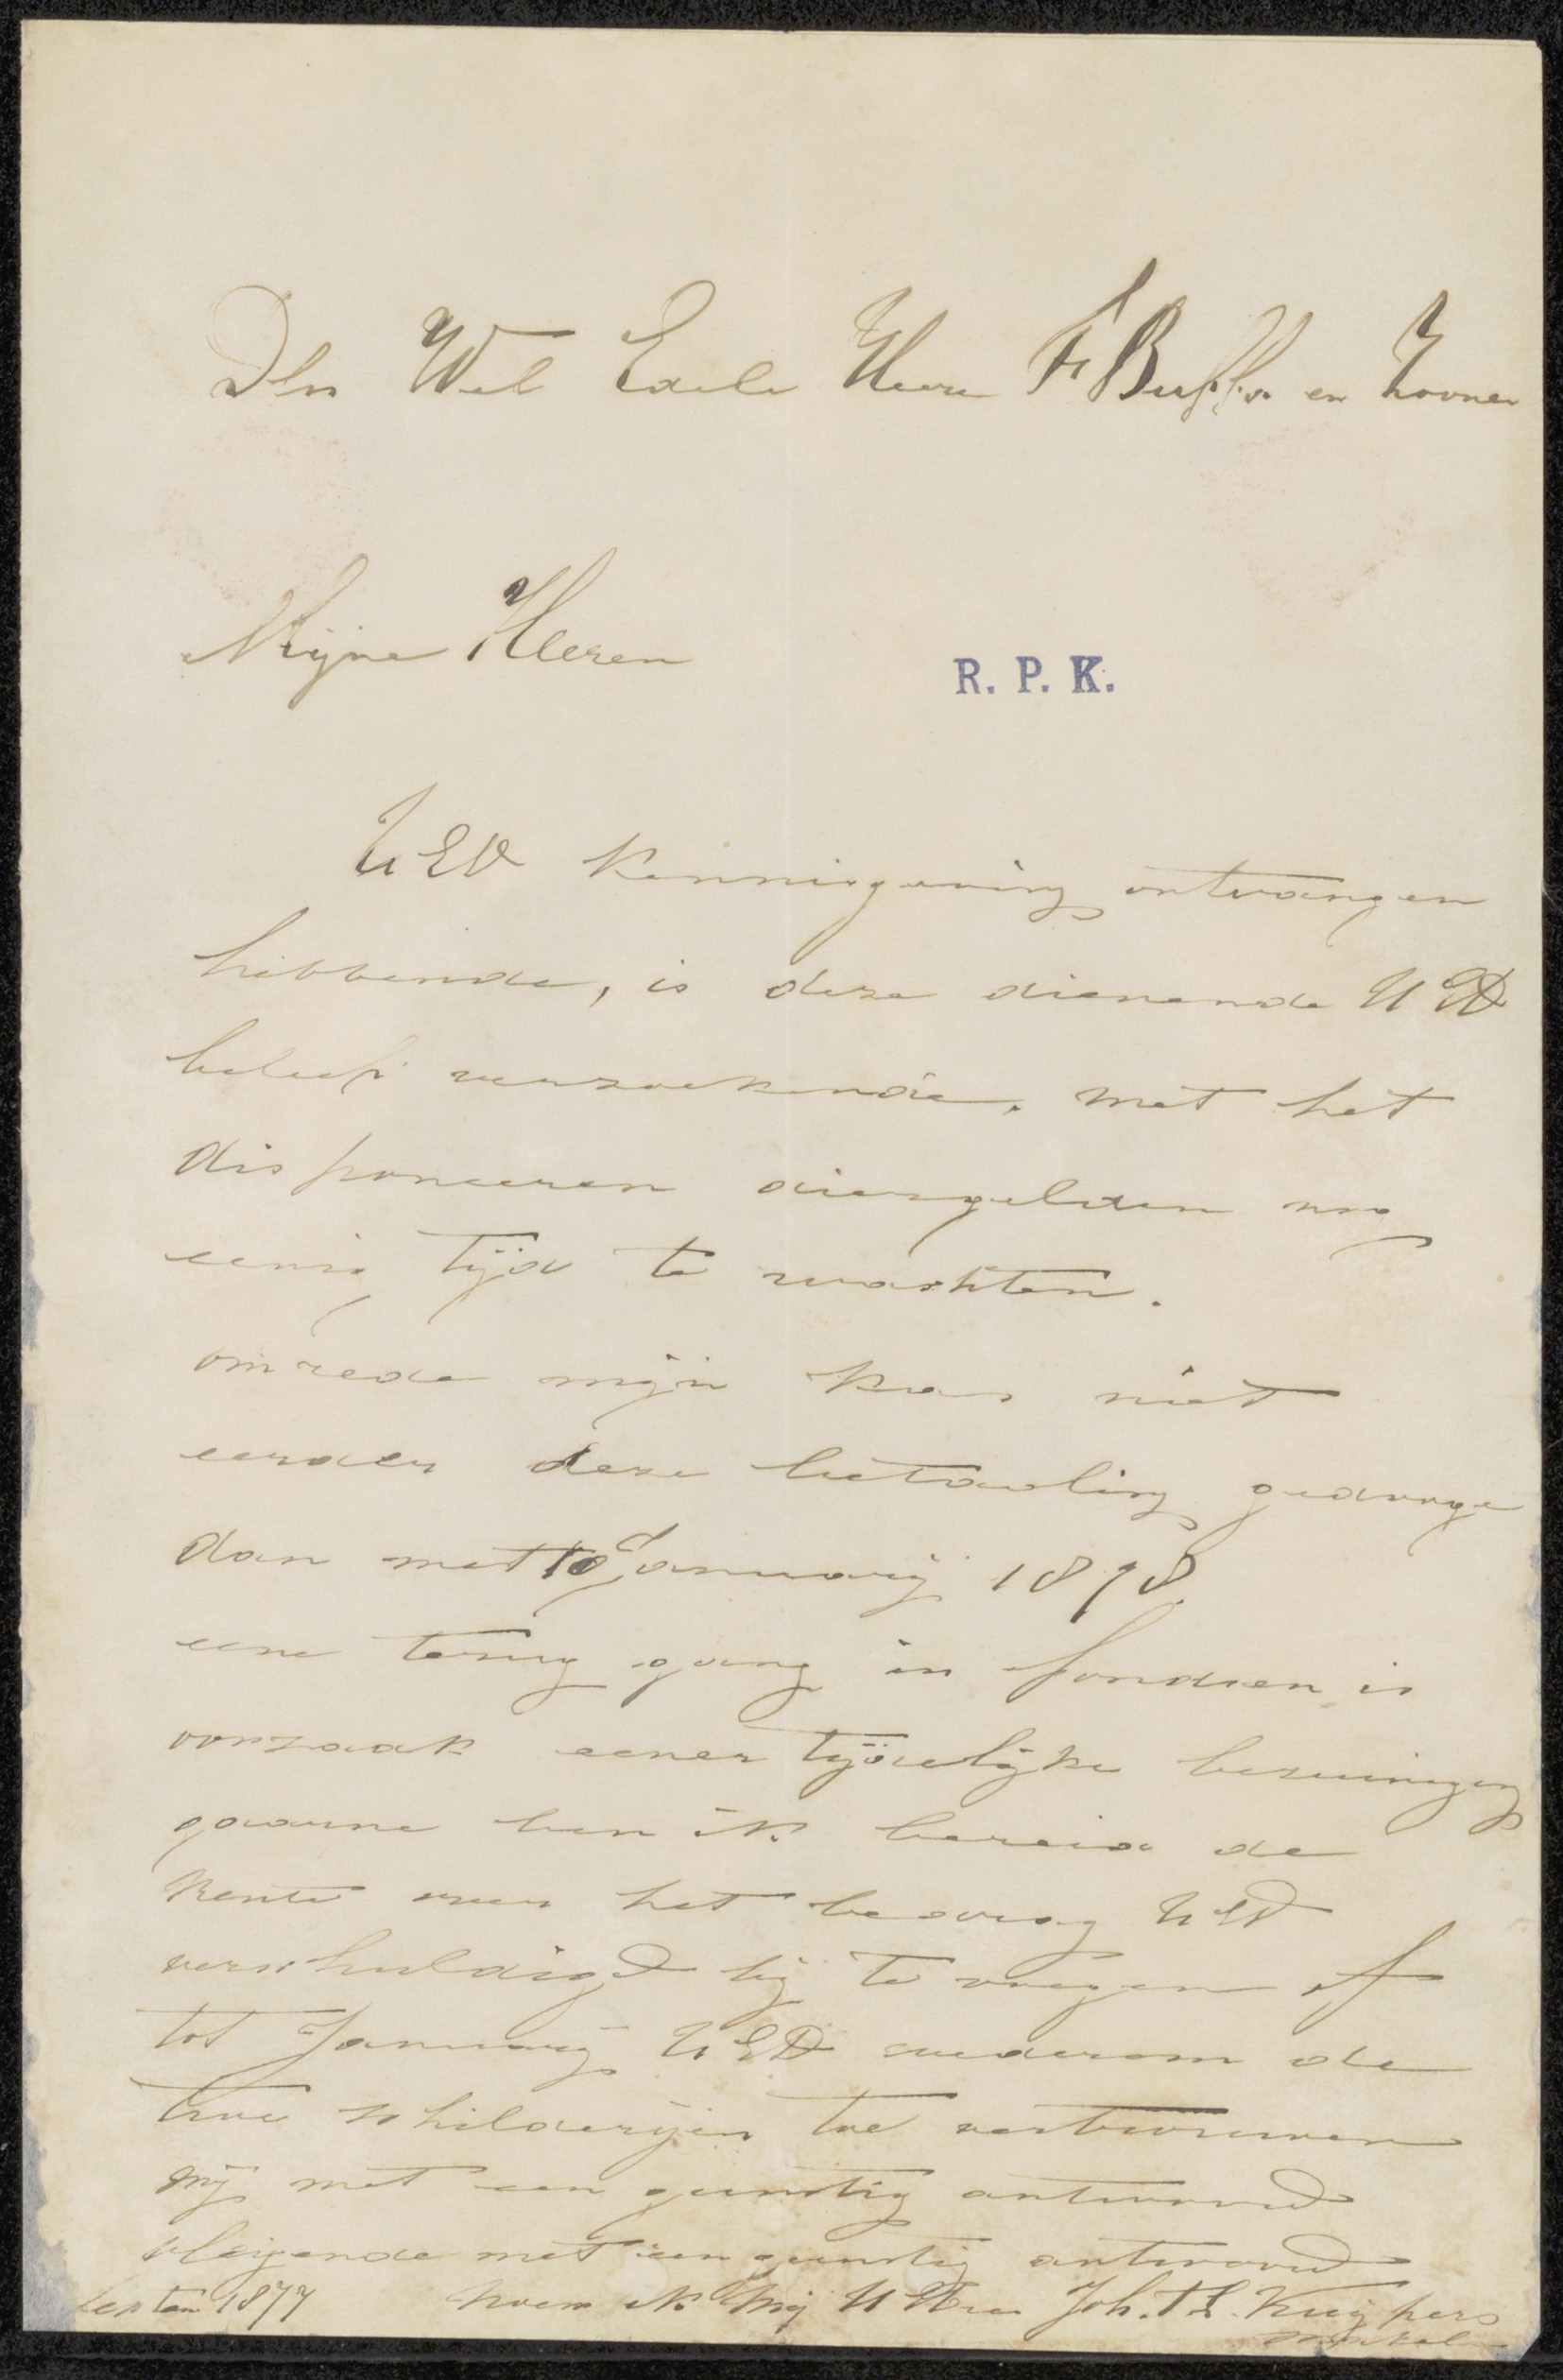 Den Wel Edele Heeren F Buffa en Zoonen
Mijne Heeren
R. P. K.
UED Kennisgeving ontvangen
hebbende, is deze dienende UED
beleeft verzoekende, met het
disponeeren diergelden nog
eenig tijd te wachten.
omrede mijn kas niet
eerder deze betaaling gedooge
dan met 10 January 1878.
eene terug gang in fondsen is
oorzaak eener tijdelijke bezuiniging
gaarne ben ik bereid de
Rente over het bedrag UED
verschuldigd bij te voegen of
tot January UED wederom de
twee schilderijen toe vertrouwen
mij met een gunstig antwoord
vleijende met een gunstig antwoord
1877 Noem ik mij UEDen Joh. Kuijpers